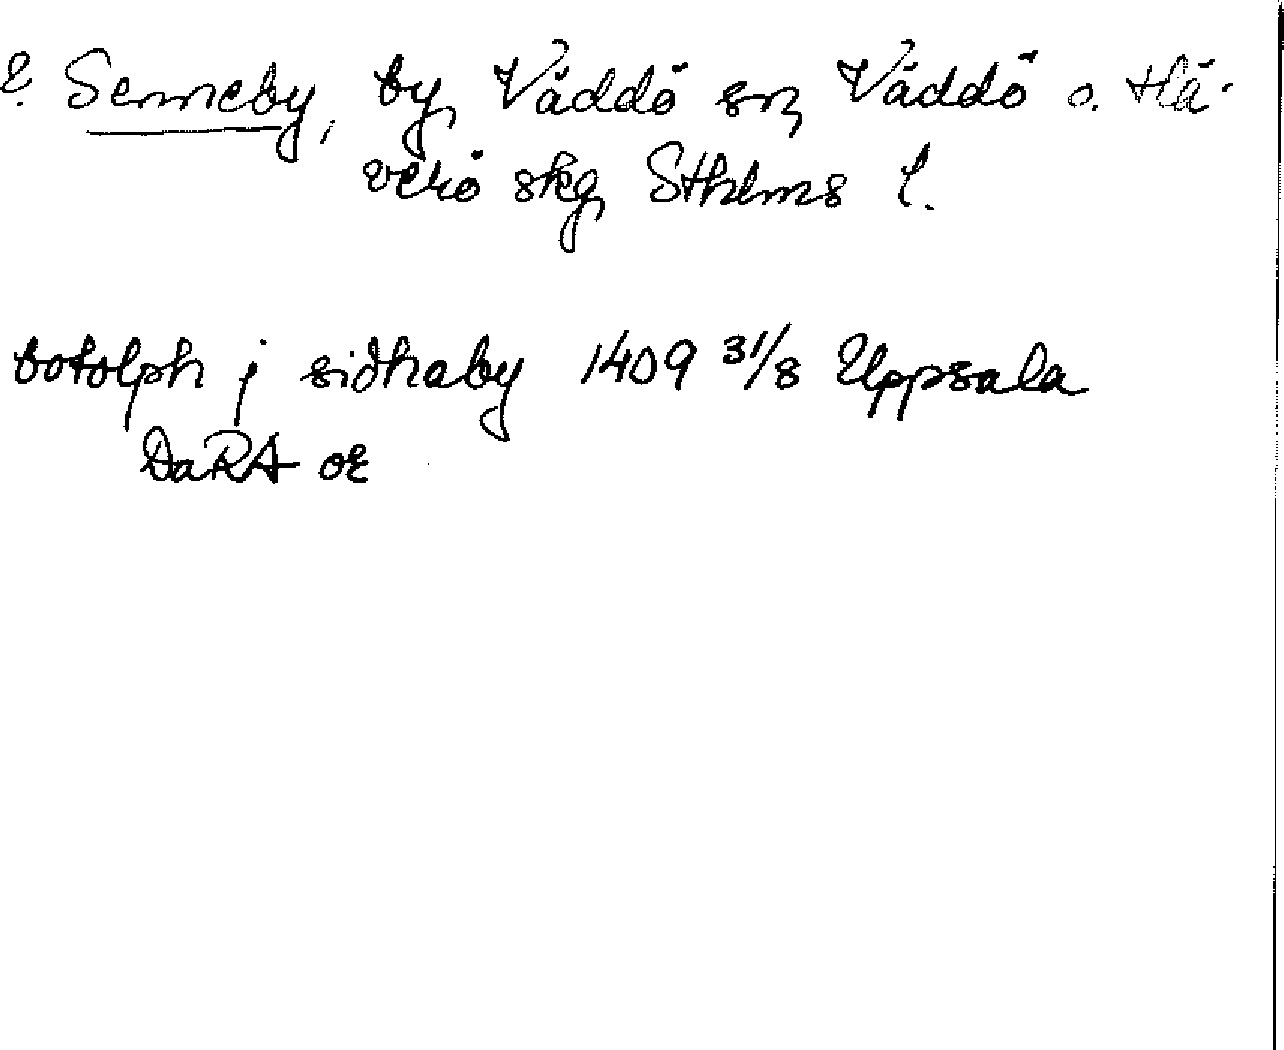 ? Senneby, by, Väddö sn, Väddö o. Hä-
verö skg, Sthlms l.
botolph j sidhaby 1409 31/8 Uppsala
DaRA or